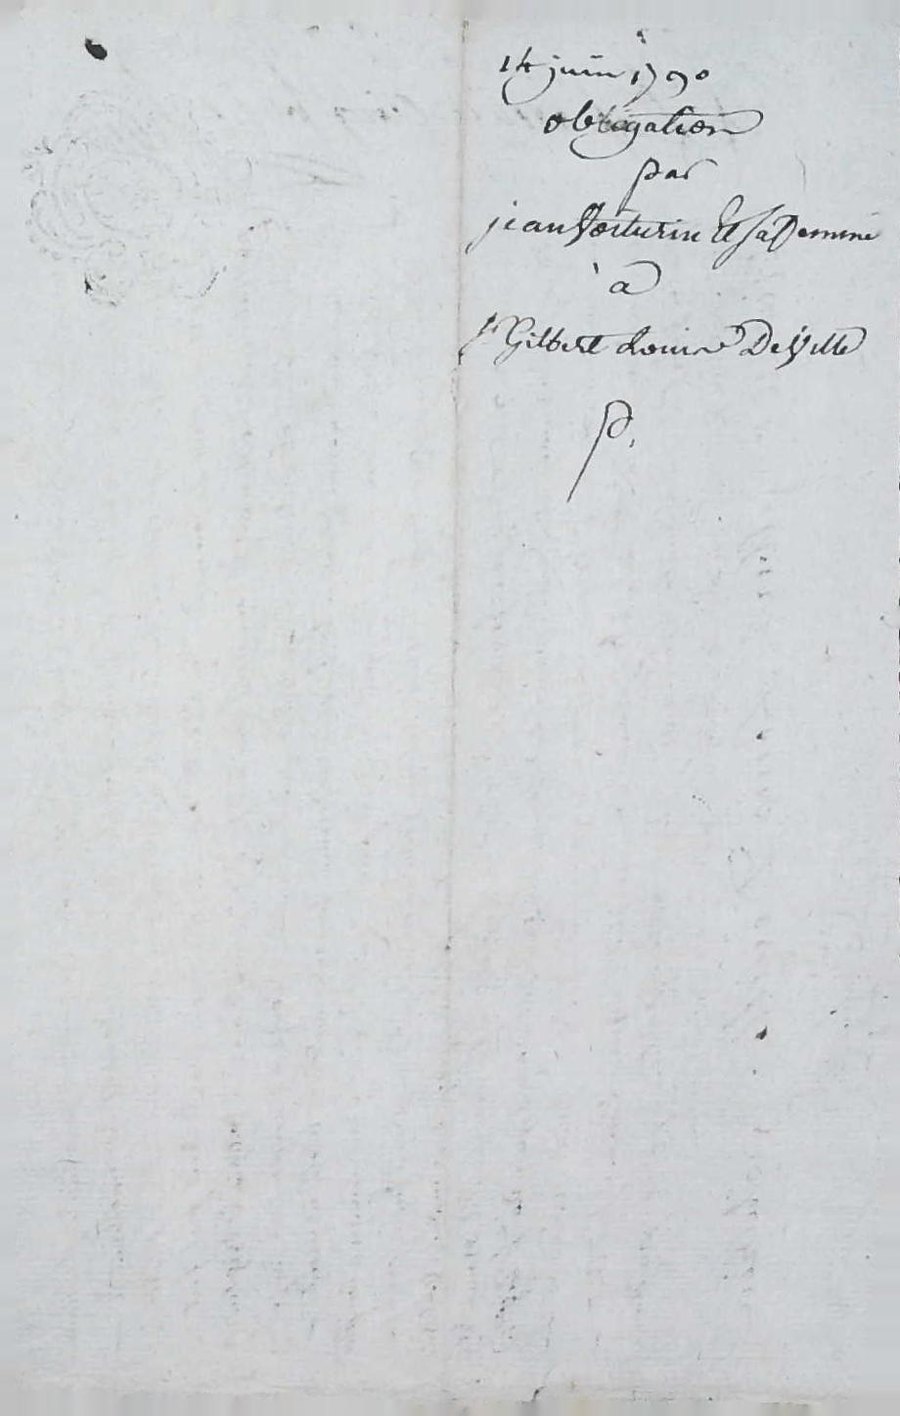 14 juin 1790
obligation
par
jean Voiturin Et sa Femme
à
Sr Gilbert Louis DeVille
P.